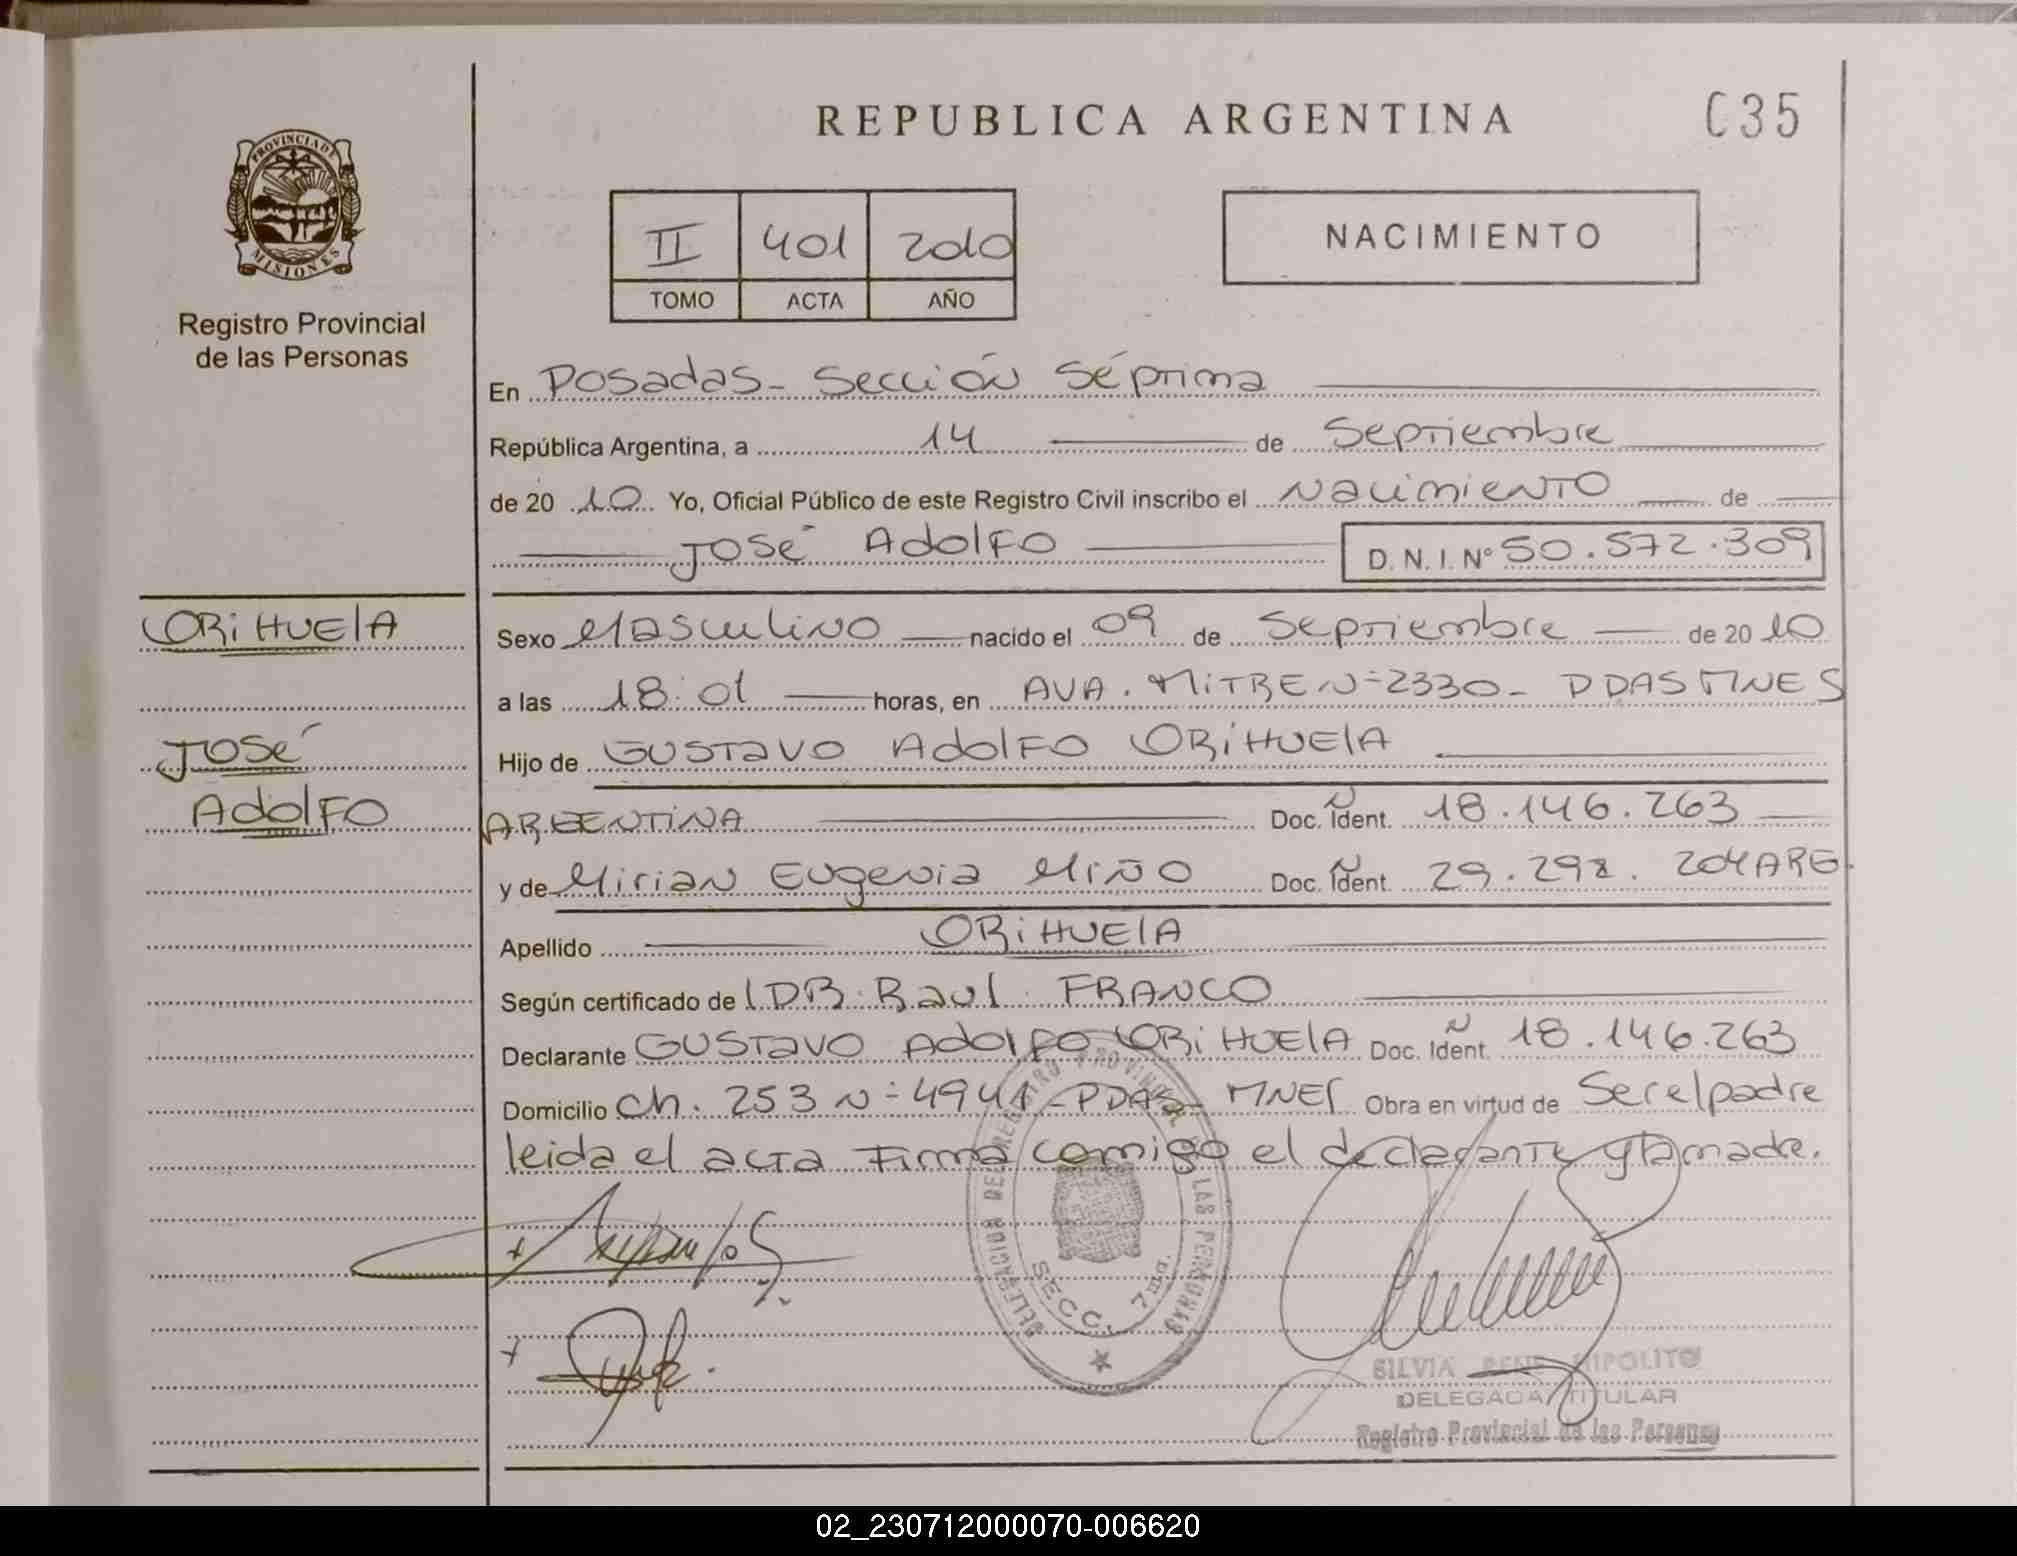 REPUBLICA ARGENTINA
C35
PROVINCIA DE
MISIONES
Registro Provincial
de las Personas
II 401 2010
TOMO ACTA AÑO
NACIMIENTO
En Posadas - Sección Séptima
República Argentina, a 14 de Septiembre
de 20 10 Yo, Oficial Público de este Registro Civil inscribo el Nacimiento de
José Adolfo D. N. I. Nº 50.572.309
ORiHUElA
José
Adolfo
Sexo Masculino nacido el 09 de Septiembre de 20 10
a las 18:01 horas, en AVA. MiTRE N=2330- PDAS MNES
Hijo de Gustavo Adolfo ORiHUElA
ARGENTINA Doc. Ident. N 18.146.263
y de Mirian Eugenia Miño Doc. Ident. N 29.298.204 ARG.
Apellido ORiHUElA
Según certificado de DR. Raul FRANCO
Declarante Gustavo Adolfo ORiHUElA Doc. Ident. N 18.146.263
Domicilio Ch. 253 N=4941-PDAS- MNES Obra en virtud de Ser el padre
leida el acta Firma comigo el declarante y la madre.
DELEGACION DE REGISTRO PROVINCIAL DE LAS PERSONAS
SECC. 7ma.
SILVIA RENE HIPOLITO
DELEGADA TITULAR
Registro Provincial de las Personas
02_230712000070-006620